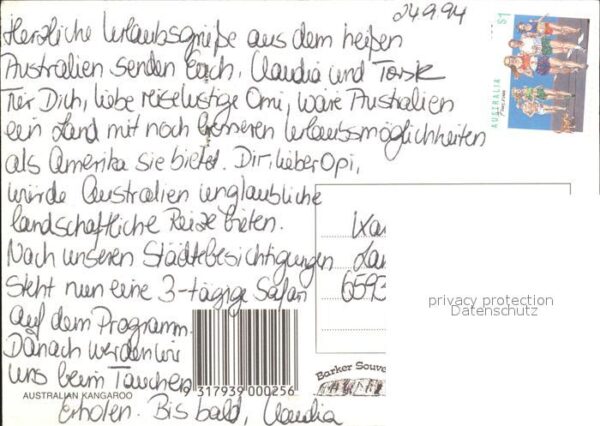 24.9.94
Herzliche Urlaubsgrüße aus dem heißen
Australien senden Euch, Claudia und
Für Dich, liebe reiselustige Omi, wäre Australien
ein Land mit noch besseren Urlaubsmöglichkeiten
als Amerika sie bietet. Dir, lieber Opi,
würde Australien unglaubliche
landschaftliche Reize bieten.
Nach unseren Städtebesichtigungen
steht nun eine 3-tägige Safari
auf dem Programm.
Danach werden wir
uns beim Tauchen
erholen. Bis bald, Claudia
$1
AUSTRALIA
6593
privacy protection
Datenschutz
Barker Souve
9 317939 000256
AUSTRALIAN KANGAROO